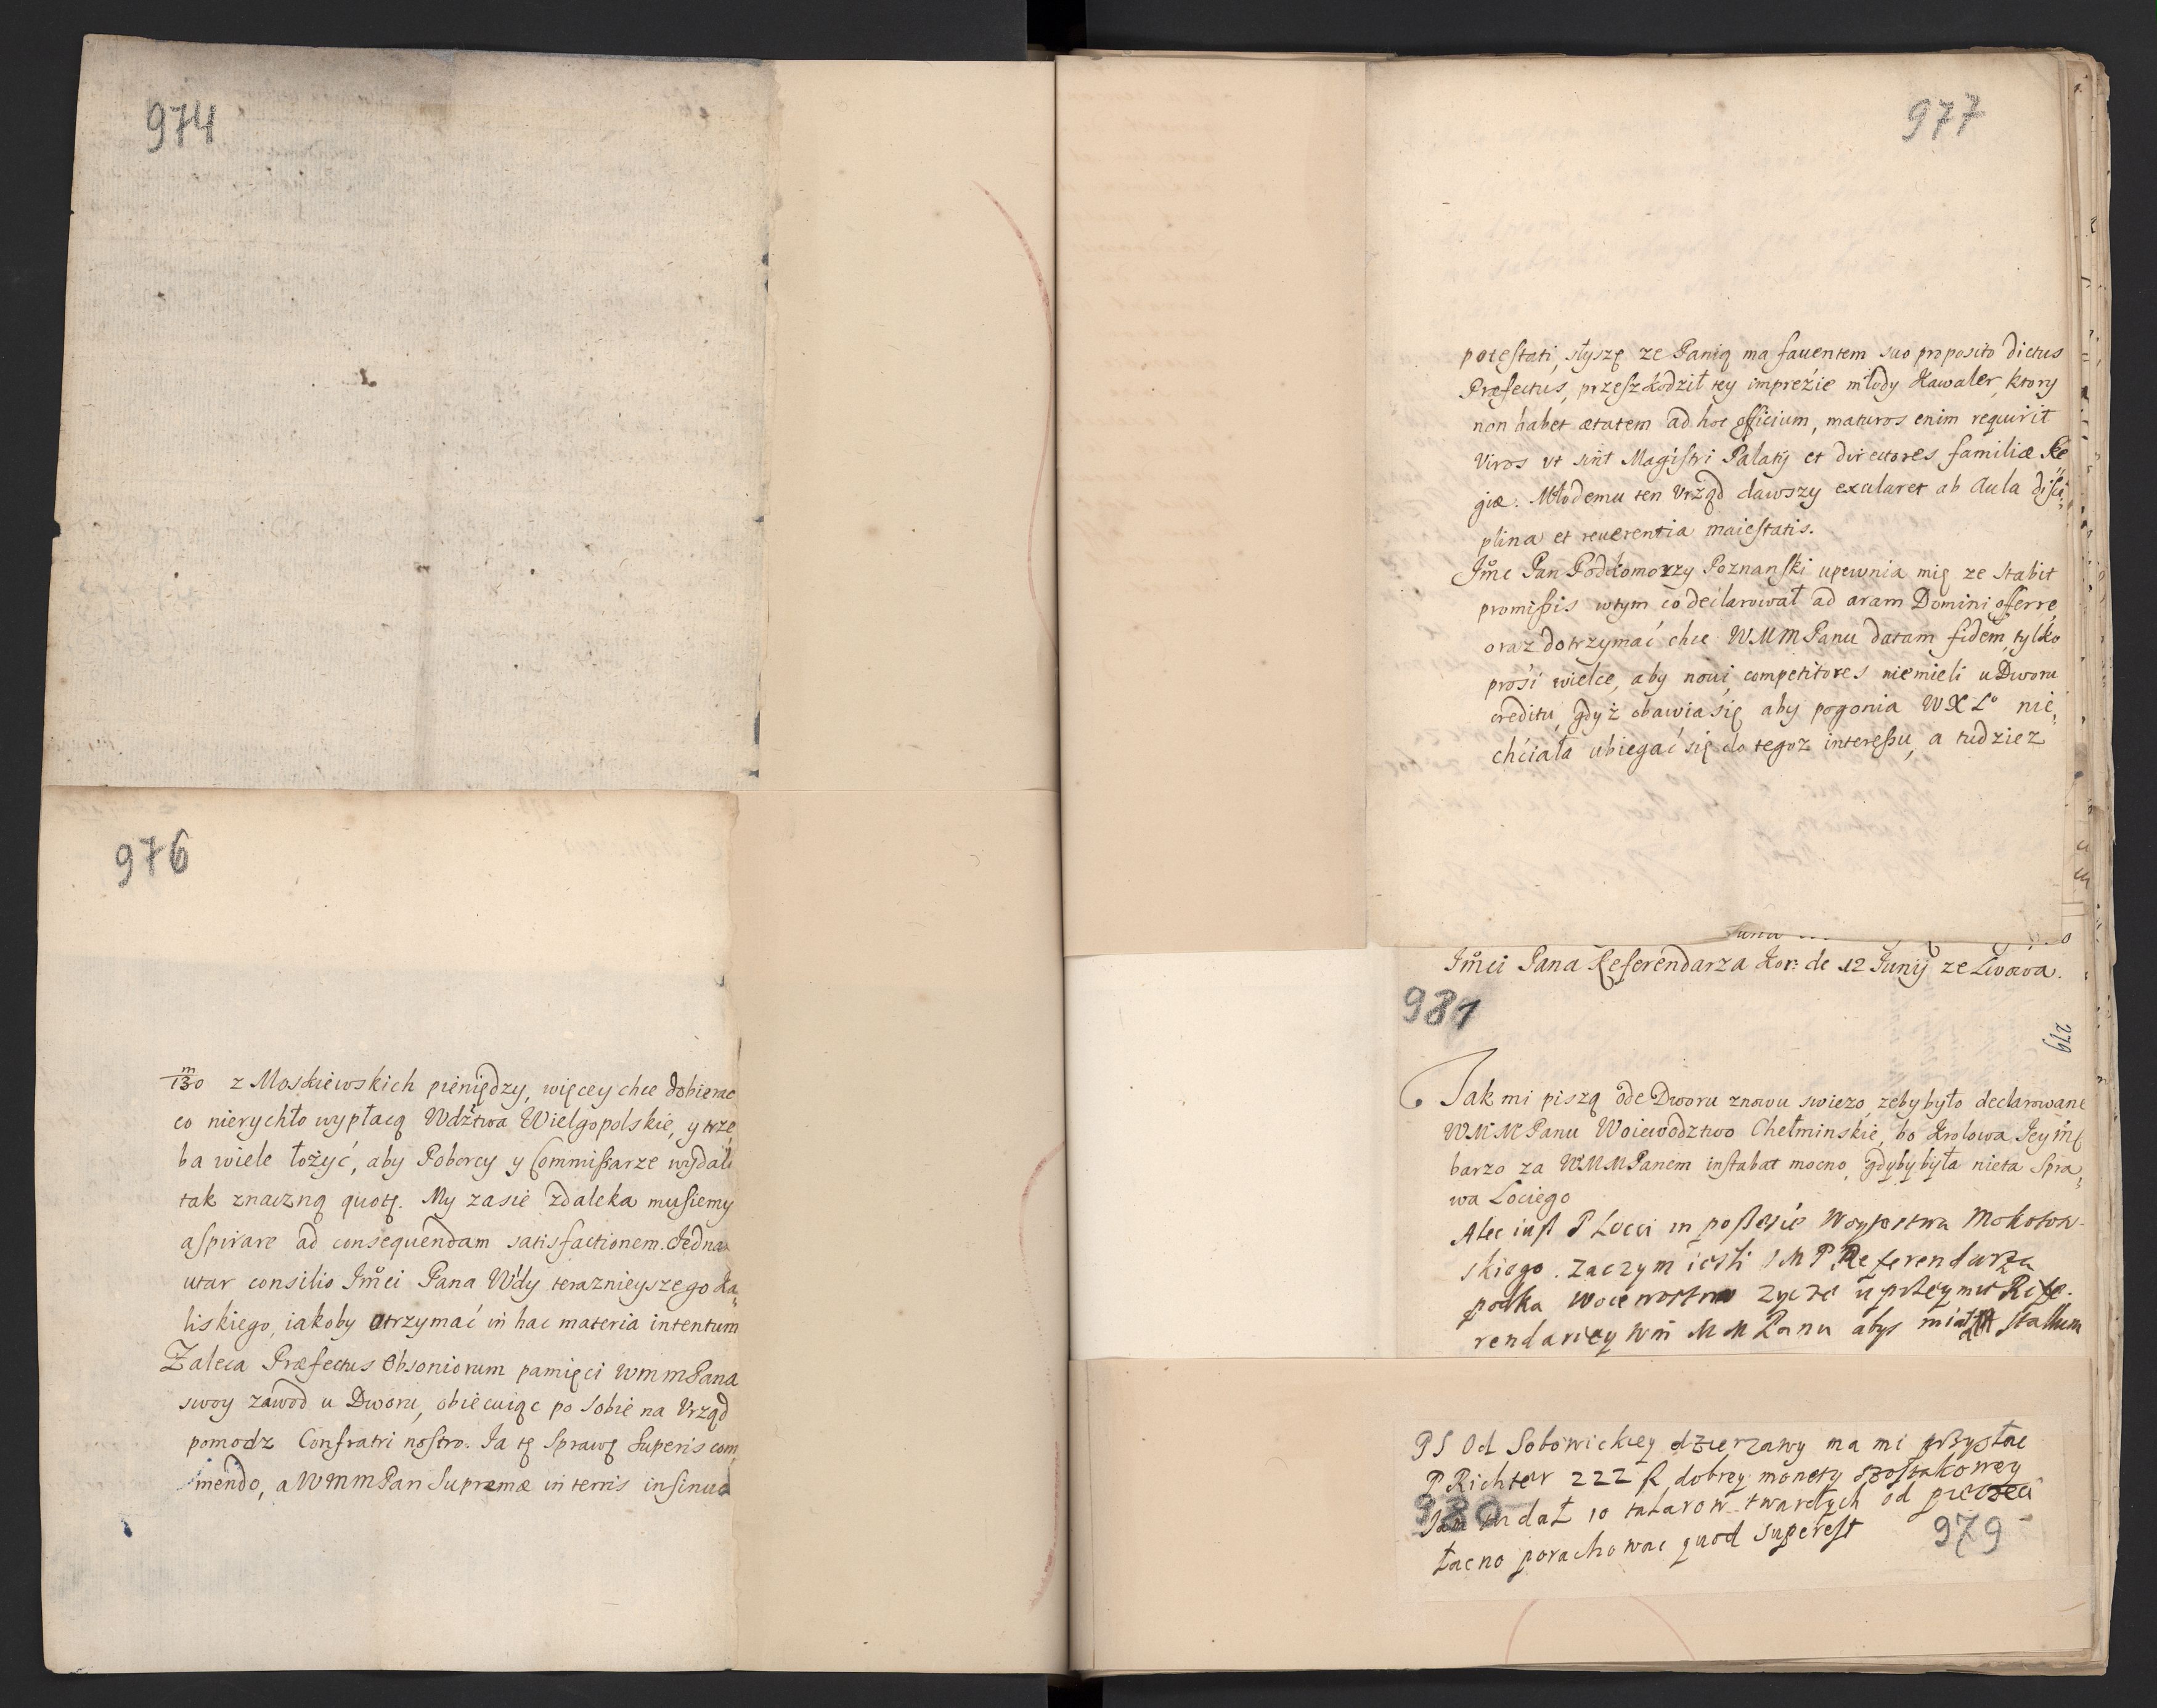 974
976
m/130 z Moskiewskich pieniędzy, więcey chce dobierac
co nierychło wypłacą Wdztwa Wielgopolskie, y trze,
ba wiele łożyć, aby Poborcy y Commißarze wydali
tak znaczną quotę. My zasie zdaleka musiemy
aspirare ad consequendam satisfactionem. Jedna
utar consilio Jmci Pana Wdy teraznieyszego Ka,
liskiego, iakoby otrzymać in hac materia intentum
Zaleca Præfectus Obsoniorum pamięci WmmPana
swoy zawod u Dworu, obiecuiąc po sobie na Vrząd
pomodz Confratri nostro. Ja tę sprawę Superis com,
mendo, a WmmPan Supremæ in terris insinua
977
potestati, słyszę ze Panią ma fauentem suo proposito dictus
Præfectus, przeszkodził tey imprezie młody Kawaler, ktory
non habet ætatem ad hoc officium, maturos enim requirit
Viros vt sint Magistri Palatij et directores familiæ Re
giæ. Młodemu ten Vrząd dawszy exularet ab Aula disci,
plina et reuerentia maiestatis.
Jmc Pan Podkomorzy Poznanski upewnia mię ze stabit
promißis wtym co declarował ad aram Domini offerre,
oraz dotrzymać chce WMMPanu datam fidem, tylko
prosi wielce, aby noui competitores niemieli u Dworu
creditu, gdyż obawia się aby pogonia WXLo nie,
chciała ubiegać się do tegoz intereßu, a tudziez
Jmci Pana Referendarza Kor: de 12 Junij ze Lwowa.
981
279
Jak mi piszą ode Dworu znowu swiezo, zeby było declarowane
WMMPanu Woiewodztwo Chełminskie, bo Krolowa Jeymć
barzo za WMMPanem instabat mocno, gdyby była nie ta Spra,
wa Lociego
Alec iusz P Locci in poßesie Woytostwa Mokotow-
skiego. Zaczym iesli JMP Referendarza
potka woiewostwo zycze uprzeymie Refe-
rendariey Wm MM Panu abys miał stallum
PS Od Sobowickiey dzierzawy ma mi przysłac
P Richter 222 f. dobrey monety szostakowey
980
Jam mu dał 10 talarow twardych od pieczeci
łacno porachowac quod superest
979